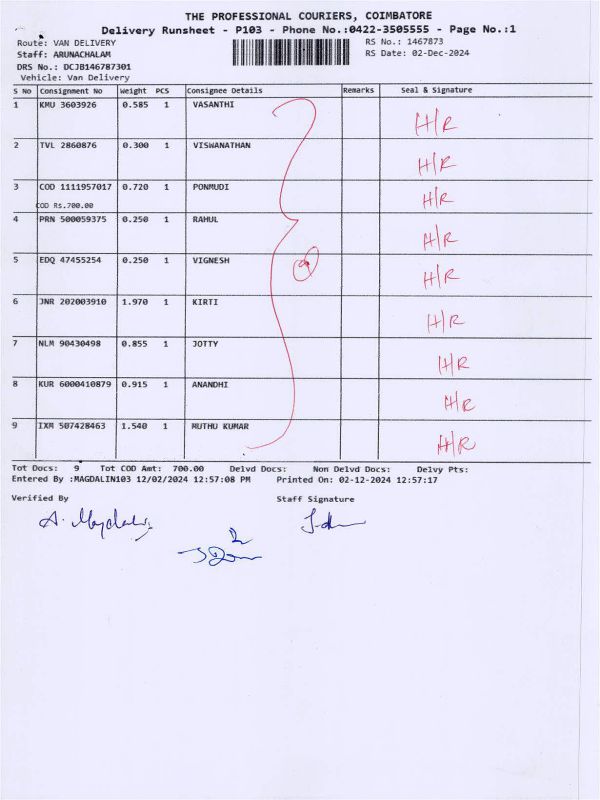 THE PROFESSIONAL COURIERS, COIMBATORE
Delivery Runsheet - P103 - Phone No.:0422-3505555 - Page No.:1
Route: VAN DELIVERY RS No.: 1467873
Staff: ARUNACHALAM RS Date: 02-Dec-2024
DRS No.: DCJB146787301
Vehicle: Van Delivery
S No Consignment No Weight PCS Consignee Details Remarks Seal & Signature
1 KMU 3603926 0.585 1 VASANTHI H/R
2 TVL 2860876 0.300 1 VISWANATHAN H/R
3 COD 1111957017 0.720 1 PONMUDI H/R
COD Rs.700.00
4 PRN 500059375 0.250 1 RAHUL H/R
5 EDQ 47455254 0.250 1 VIGNESH H/R
6 JNR 202003910 1.970 1 KIRTI H/R
7 NLM 90430498 0.855 1 JOTTY H/R
8 KUR 6000410879 0.915 1 ANANDHI H/R
9 IXM 507428463 1.540 1 MUTHU KUMAR H/R
Tot Docs: 9 Tot COD Amt: 700.00 Delvd Docs: Non Delvd Docs: Delvy Pts:
Entered By :MAGDALIN103 12/02/2024 12:57:08 PM Printed On: 02-12-2024 12:57:17
Verified By Staff Signature